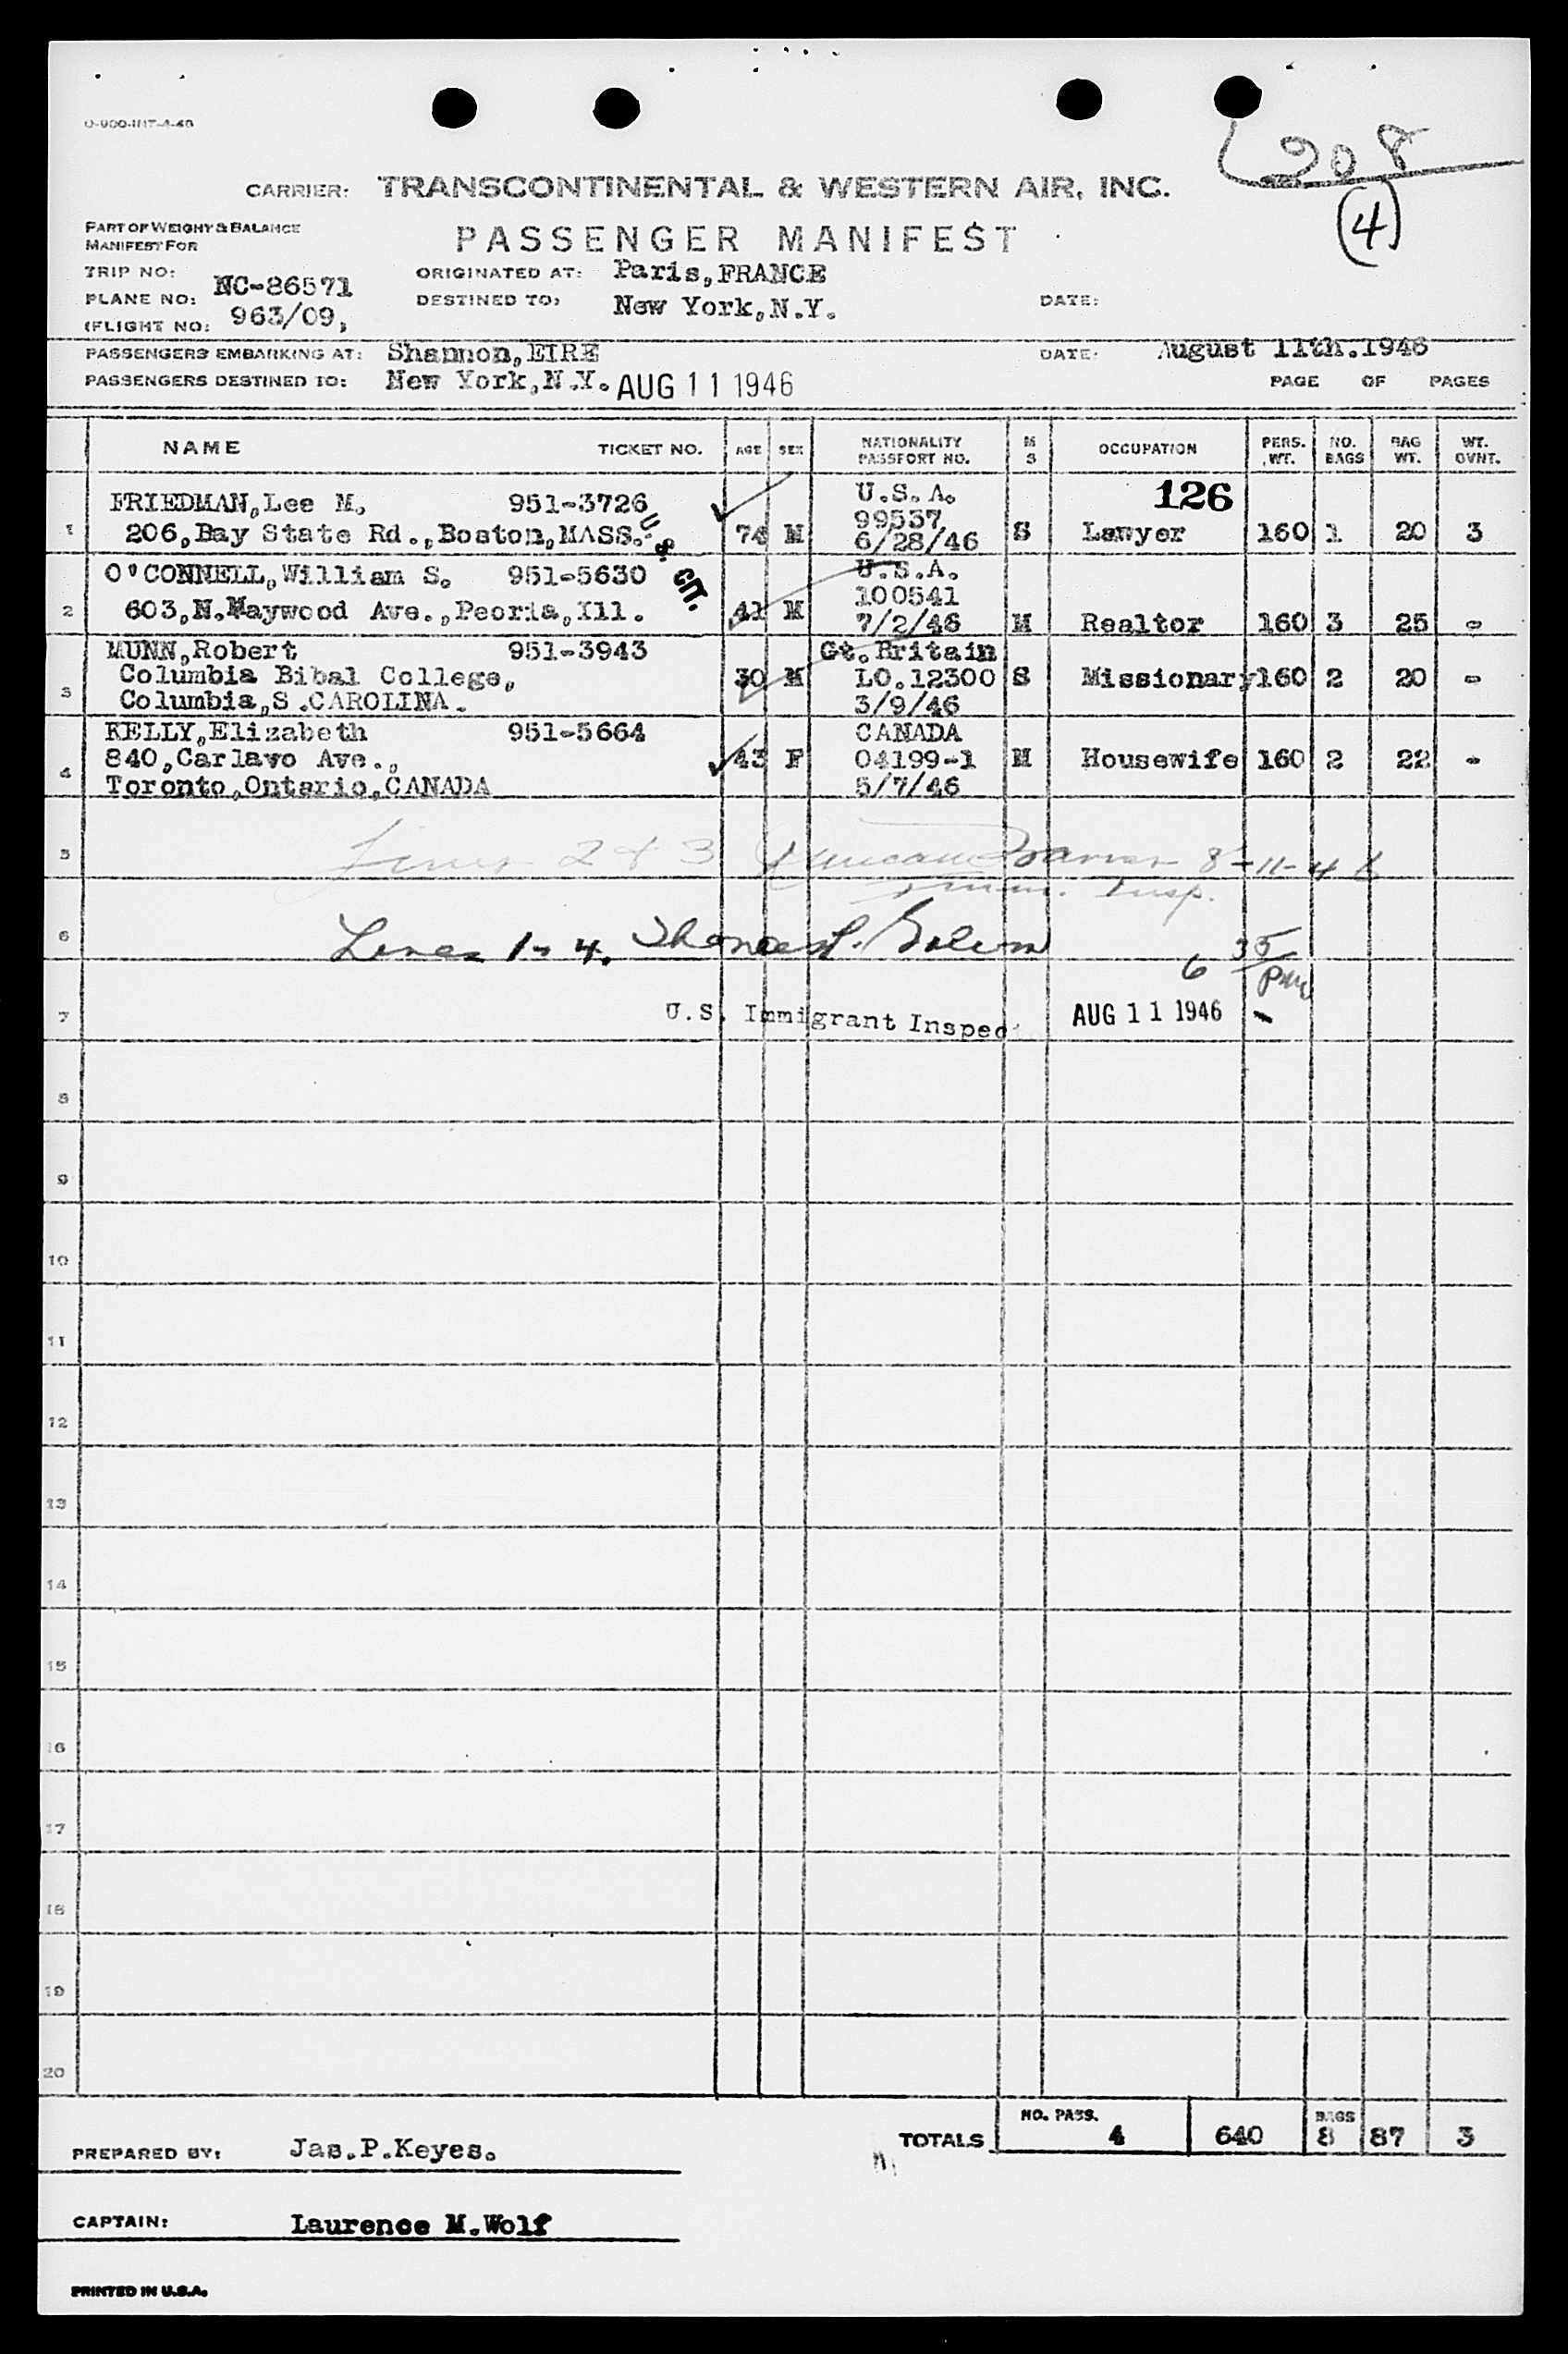 208
(4)
CARRIER: TRANSCONTINENTAL & WESTERN AIR, INC.
PART OF WEIGHT & BALANCE
MANIFEST FOR
PASSENGER MANIFEST
TRIP NO:
PLANE NO: NC-86571
(FLIGHT NO: 963/09,
ORIGINATED AT: Paris,FRANCE
DESTINED TO: New York,N.Y.
DATE:
PASSENGERS EMBARKING AT: Shannon,EIRE DATE: August 11th.1946
PASSENGERS DESTINED TO: New York,N.Y. AUG 11 1946 PAGE OF PAGES
NAME TICKET NO. AGE SEX NATIONALITY PASSPORT NO. M S OCCUPATION PERS. WT. NO. BAGS BAG WT. WT. OVNT.
126
FRIEDMAN,Lee M. 951-3726 U.S.A.
99537
1 206,Bay State Rd.,Boston,MASS. U.S. CIT. 74 M 6/28/46 S Lawyer 160 1 20 3
O'CONNELL,William S. 951-5630 U.S.A.
100541
2 603,N.Maywood Ave.,Peoria,Ill. 41 M 7/2/46 M Realtor 160 3 25 -
MUNN,Robert 951-3943 Gt.Britain
Columbia Bibal College, 30 M LO.12300 S Missionary 160 2 20 -
3 Columbia,S.CAROLINA. 3/9/46
KELLY,Elizabeth 951-5664 CANADA
840,Carlavo Ave., 43 F 04199-1 M Housewife 160 2 22 -
4 Toronto,Ontario,CANADA 5/7/46
5 Lines 2 & 3 8-11-46
Imm. Insp.
6 Lines 1-4.
6 35/pm
7 U.S. Immigrant Inspec AUG 11 1946
8
9
10
11
12
13
14
15
16
17
18
19
20
TOTALS NO. PASS. 4 640 BAGS 8 87 3
PREPARED BY: Jas.P.Keyes.
CAPTAIN: Laurence M.Wolf
PRINTED IN U.S.A.